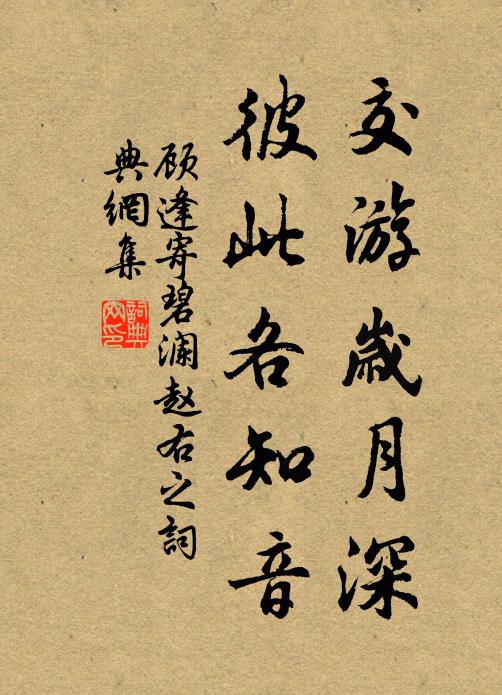 交游歲月深
彼此各知音
顾逢寄碧澜赵右之詞
典網集
詞典网印